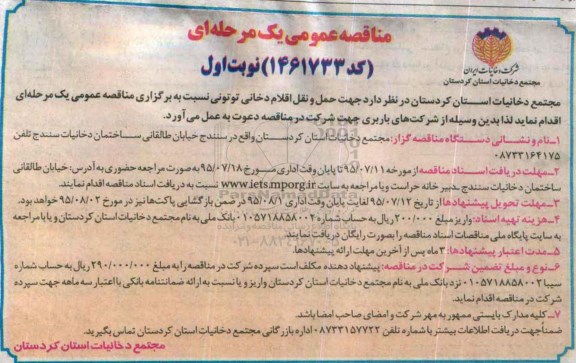 مناقصه عمومی یک مرحله‌ای
(کد ۱۴۶۱۷۳۳) نوبت اول
شرکت دخانیات ایران
مجتمع دخانیات استان کردستان
مجتمع دخانیات استان کردستان در نظر دارد جهت حمل و نقل اقلام دخانی توتونی نسبت به برگزاری مناقصه عمومی یک مرحله‌ای
اقدام نماید لذا بدین وسیله از شرکت‌های باربری جهت شرکت در مناقصه دعوت به عمل می‌آورد.
۱ـ نام و نشانی دستگاه مناقصه گزار: مجتمع دخانیات استان کردستان واقع در سنندج خیابان طالقانی ساختمان دخانیات سنندج تلفن
۰۸۷۳۳۱۶۴۱۷۵
۲ـ مهلت دریافت اسناد مناقصه از مورخه ۹۵/۰۷/۱۱ تا پایان وقت اداری مورخ ۹۵/۰۷/۱۸ به صورت مراجعه حضوری به آدرس: خیابان طالقانی
ساختمان دخانیات سنندج ـ دبیر خانه حراست و یا مراجعه به سایت www.iets.mporg.ir نسبت به دریافت اسناد مناقصه اقدام نمایند.
۳ـ مهلت تحویل پیشنهادها: از تاریخ ۹۵/۰۷/۱۲ لغایت پایان وقت اداری ۹۵/۰۸/۱ در ضمن بازگشایی پاکت‌ها نیز در مورخ ۹۵/۰۸/۰۲ خواهد بود.
۴ـ هزینه تهیه اسناد: واریز مبلغ ۲۰۰/۰۰۰ ریال به حساب شماره ۰۱۰۵۷۱۸۸۵۸۰۰۲ بانک ملی به نام مجتمع دخانیات استان کردستان و یا با مراجعه
به سایت پایگاه ملی مناقصات اسناد مناقصه را بصورت رایگان دریافت نمایند.
۵ـ مدت اعتبار پیشنهادها: ۳ ماه پس از آخرین مهلت ارائه پیشنهادها.
۶ـ نوع و مبلغ تضمین شرکت در مناقصه: پیشنهاد دهنده مکلف است سپرده شرکت در مناقصه را به مبلغ ۲۹۰/۰۰۰/۰۰۰ ریال به حساب شماره
سیبا ۰۱۰۵۷۱۸۸۵۸۰۰۲ نزد بانک ملی به نام مجتمع دخانیات استان کردستان واریز و یا نسبت به ارائه ضمانتنامه بانکی با اعتبار سه ماهه جهت سپرده
شرکت در مناقصه اقدام نماید.
۷ـ کلیه مدارک بایستی ممهور به مهر شرکت و امضای صاحب امضا باشد.
ضمناً جهت دریافت اطلاعات بیشتر با شماره تلفن ۰۸۷۳۳۱۵۷۷۲۲ اداره بازرگانی مجتمع دخانیات استان کردستان تماس بگیرید.
مجتمع دخانیات استان کردستان